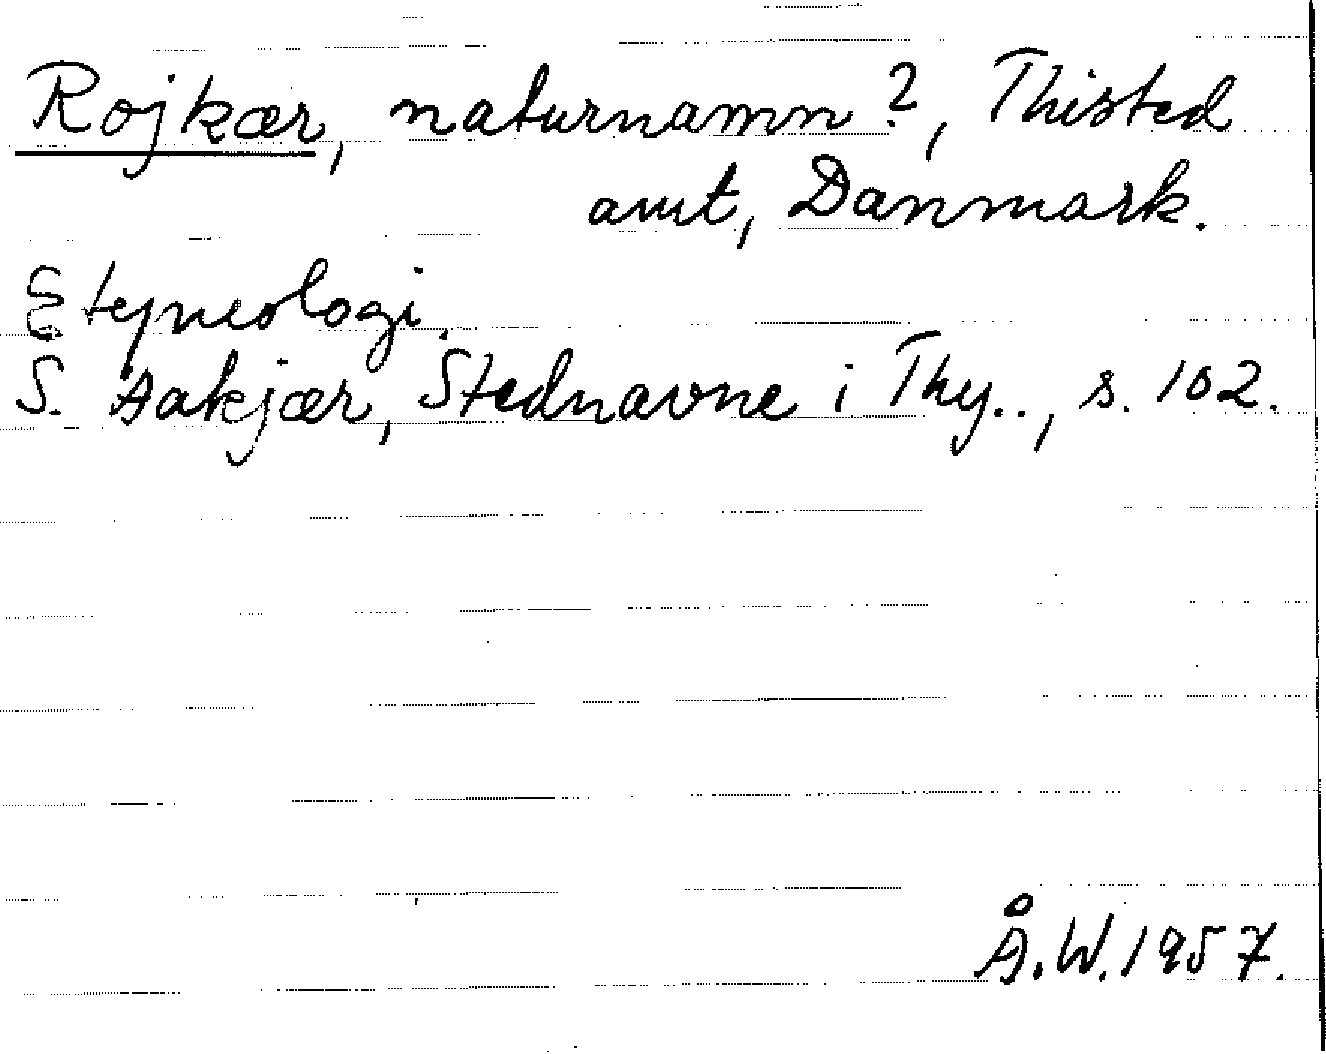 Rojkær, naturnamn?, Thisted
amt, Danmark.
Etymologi.
S. Aakjær, Stednavne i Thy.., s. 102.
Å.W. 1957.